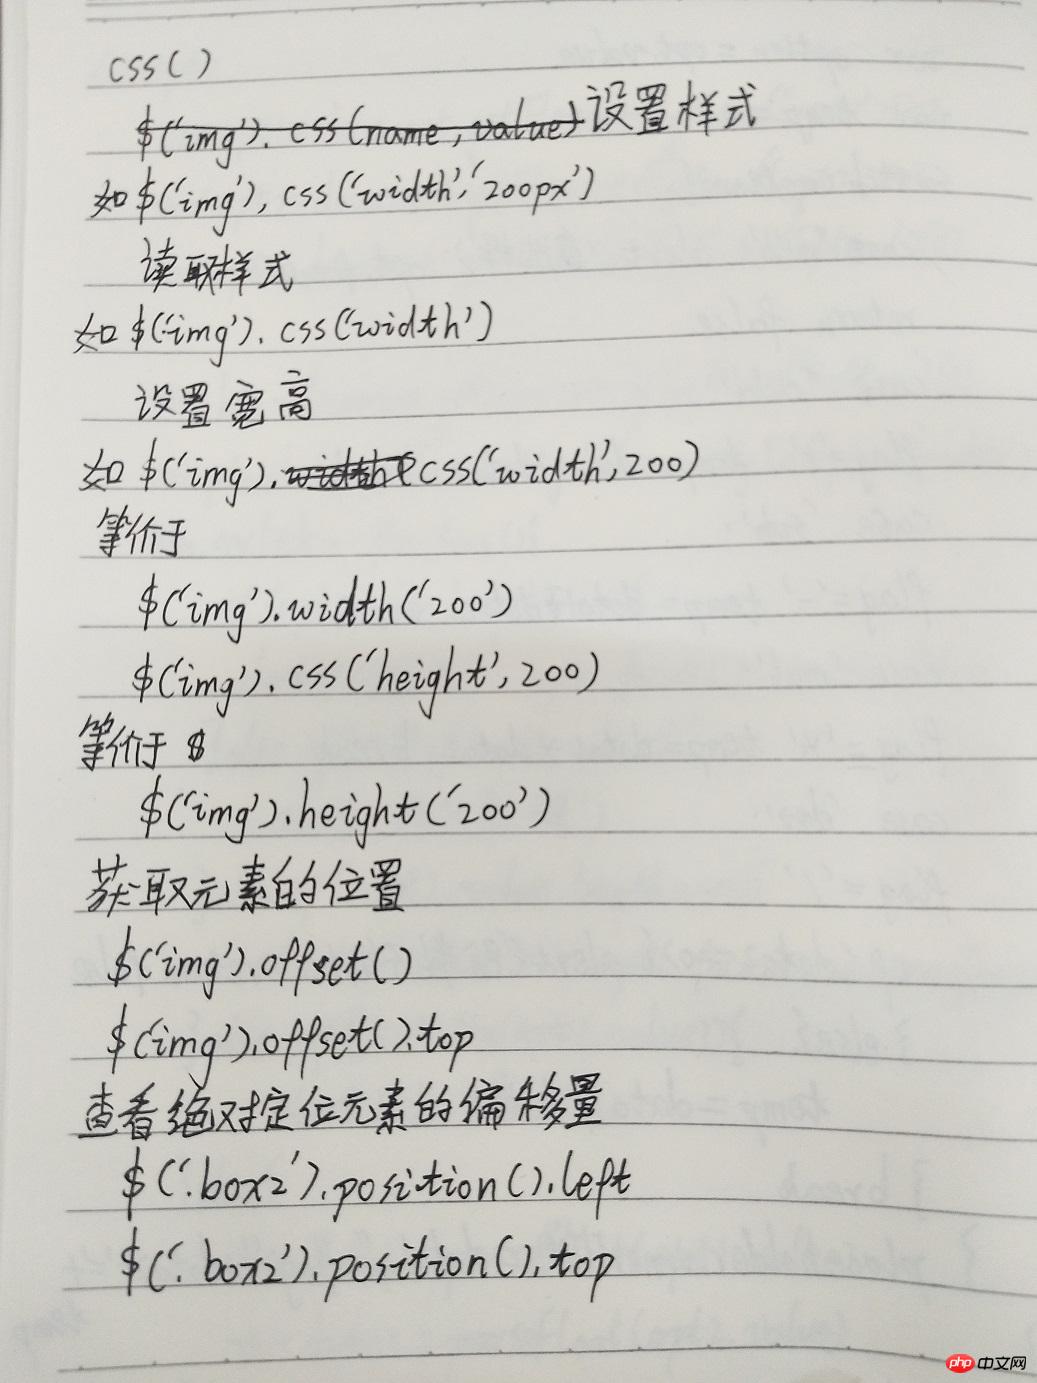 css()
$('img').css(name,value)设置样式
如$('img').css('width','200px')
读取样式
如$('img').css('width')
设置宽高
如$('img').width(css('width',200)
等价于
$('img').width('200')
$('img').css('height',200)
等价于 $
$('img').height('200')
获取元素的位置
$('img').offset()
$('img').offset().top
查看绝对定位元素的偏移量
$('.box2').position().left
$('.box2').position().top
php中文网